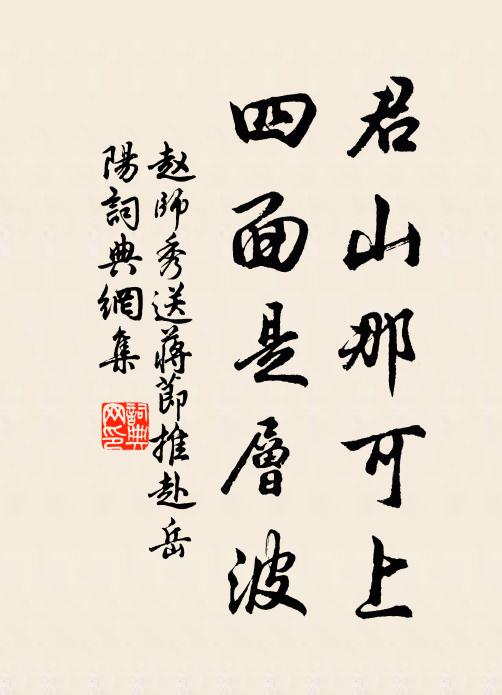 君山那可上
四面是層波
赵師秀送蔣節推赴岳
陽詞典網集
詞典
网印